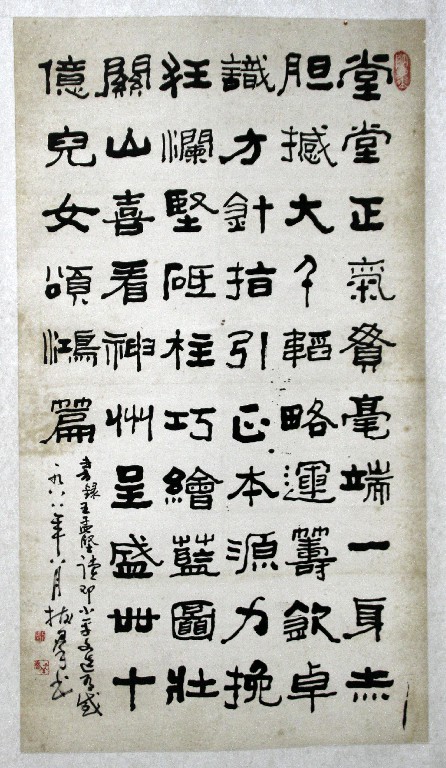 堂堂正氣贊毫端一身赤
胆撼大千韜略運籌欽卓
識方針指引正本源力挽
狂瀾堅砥柱巧繪藍圖壯
關山喜看神州呈盛世十
億兒女頌鴻篇
書錄王孟堅讀邓小平文选有感
一九八八年八月 書